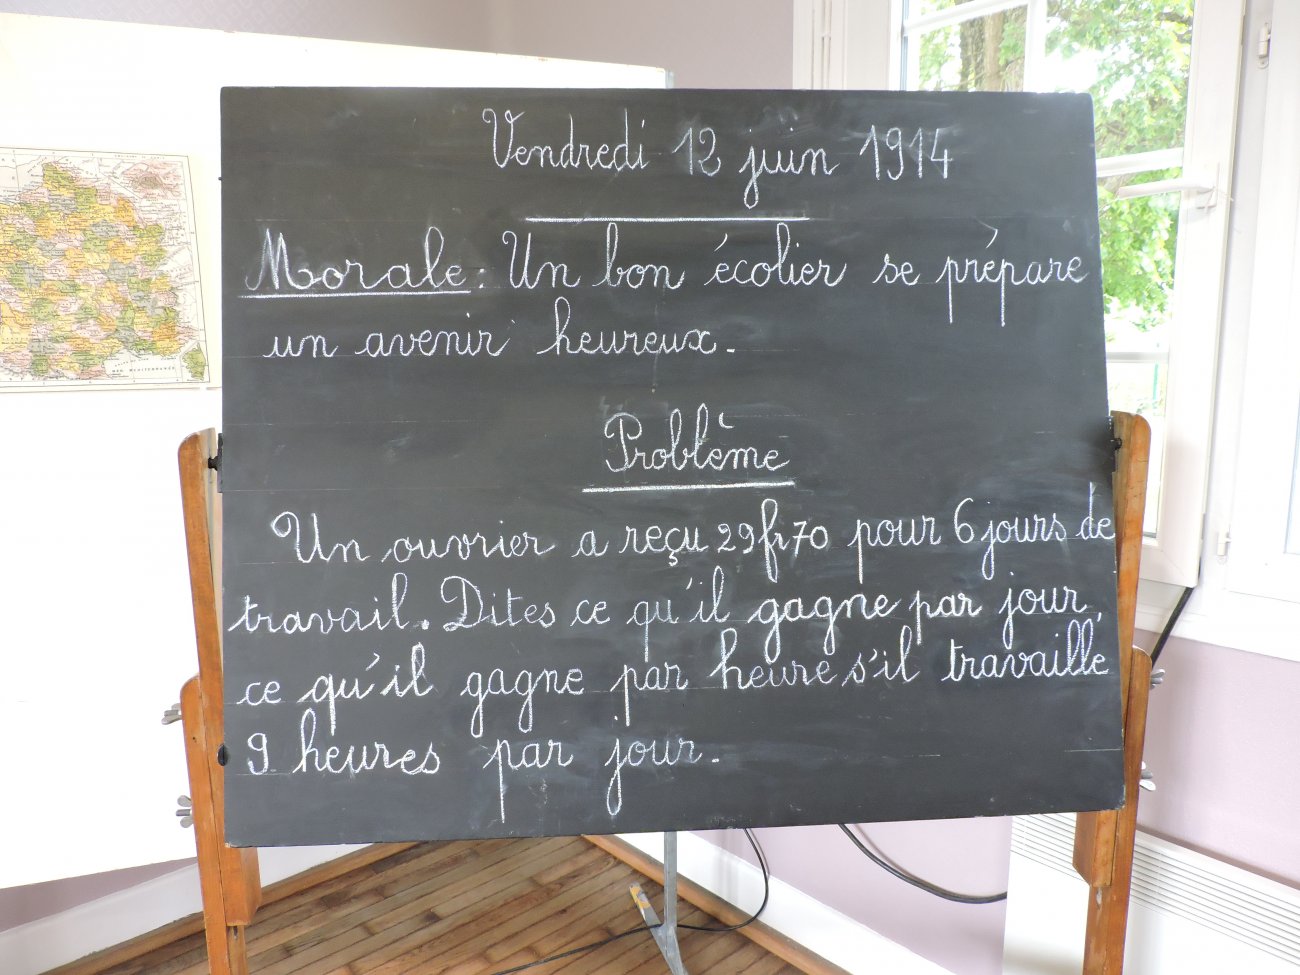 Vendredi 12 juin 1914
Morale : Un bon écolier se prépare
un avenir heureux.
Problème
Un ouvrier a reçu 29fr70 pour 6 jours de
travail. Dites ce qu'il gagne par jour,
ce qu'il gagne par heure s'il travaille
9 heures par jour.